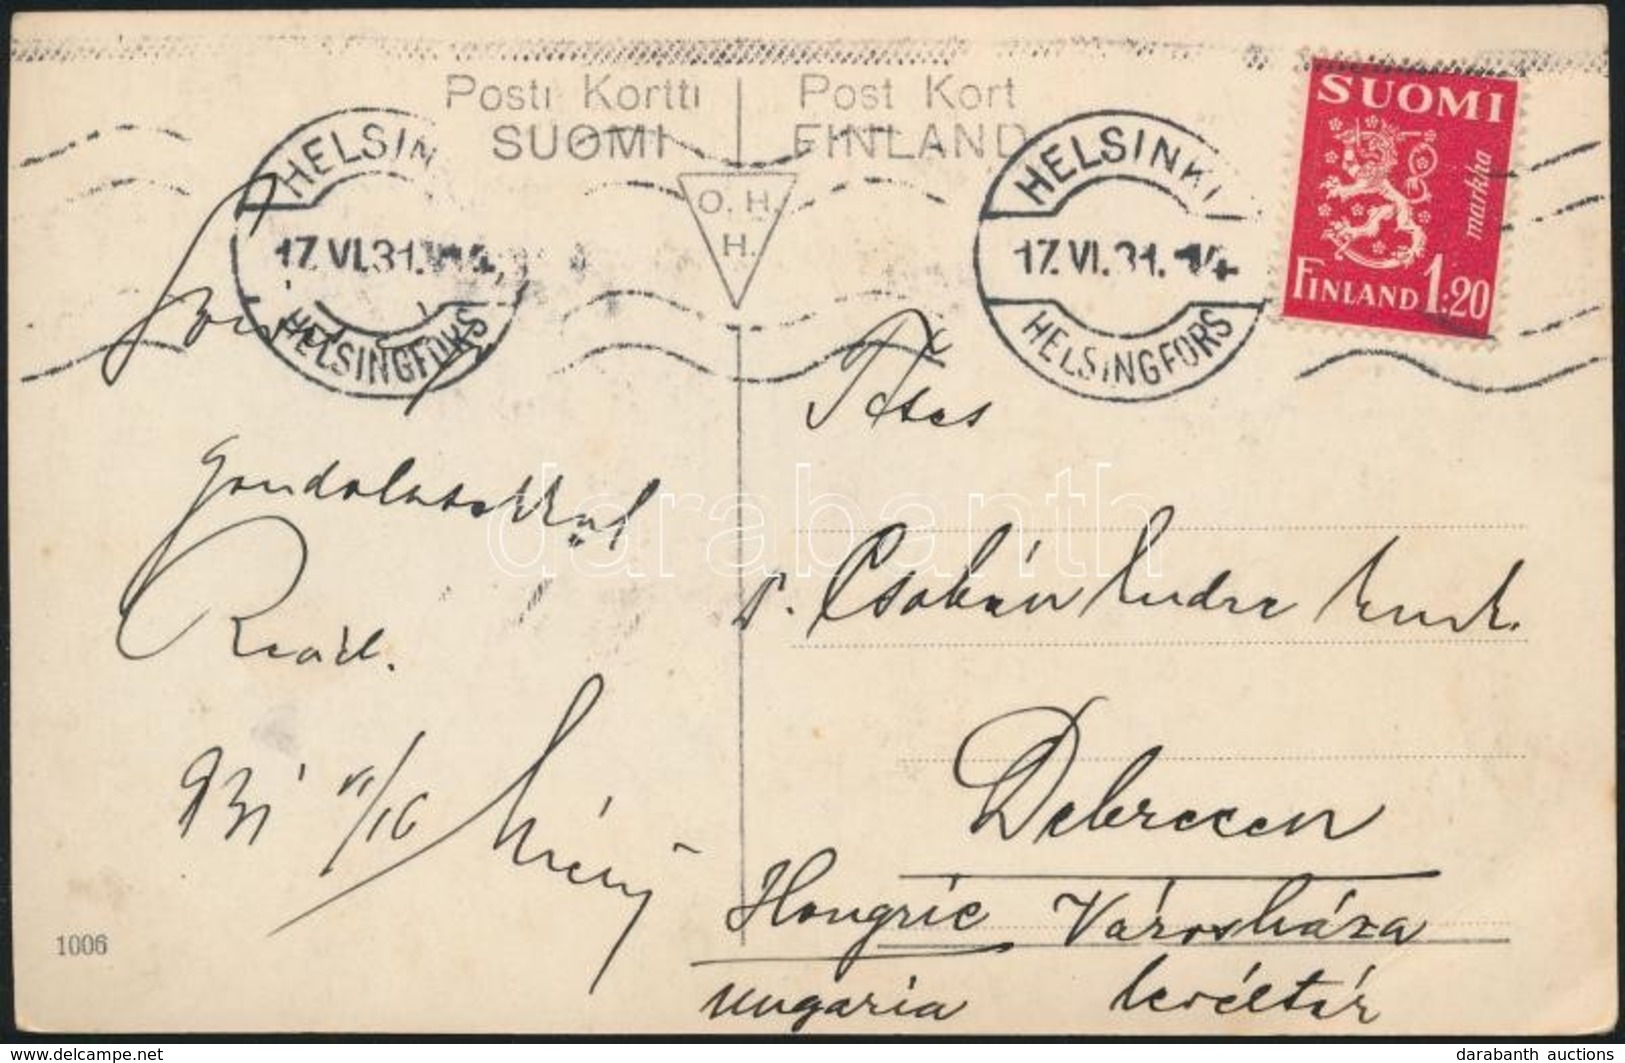 Posti Kortti
SUOMI
Post Kort
FINLAND
O. H.
H.
HELSIN
17.VI.31.
HELSINGFORS
HELSINKI
17.VI.31.
HELSINGFORS
SUOMI
markka
FINLAND 1:20
gondolatokkal
931 VI/16
1006
Ttes
Dr. Csobán Endre
Debrecen
Hongrie Városháza
Ungaria levéltár
darabanth
darabanth auctions
delcampe.net